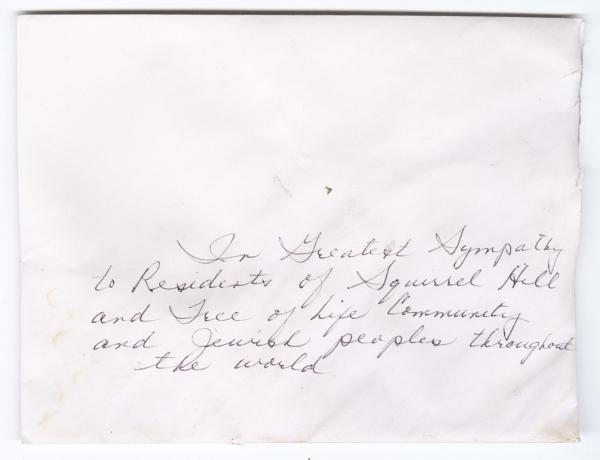 In Greatest Sympathy
to Residents of Squirrel Hill
and Tree of Life Community
and Jewish peoples throughout
the world